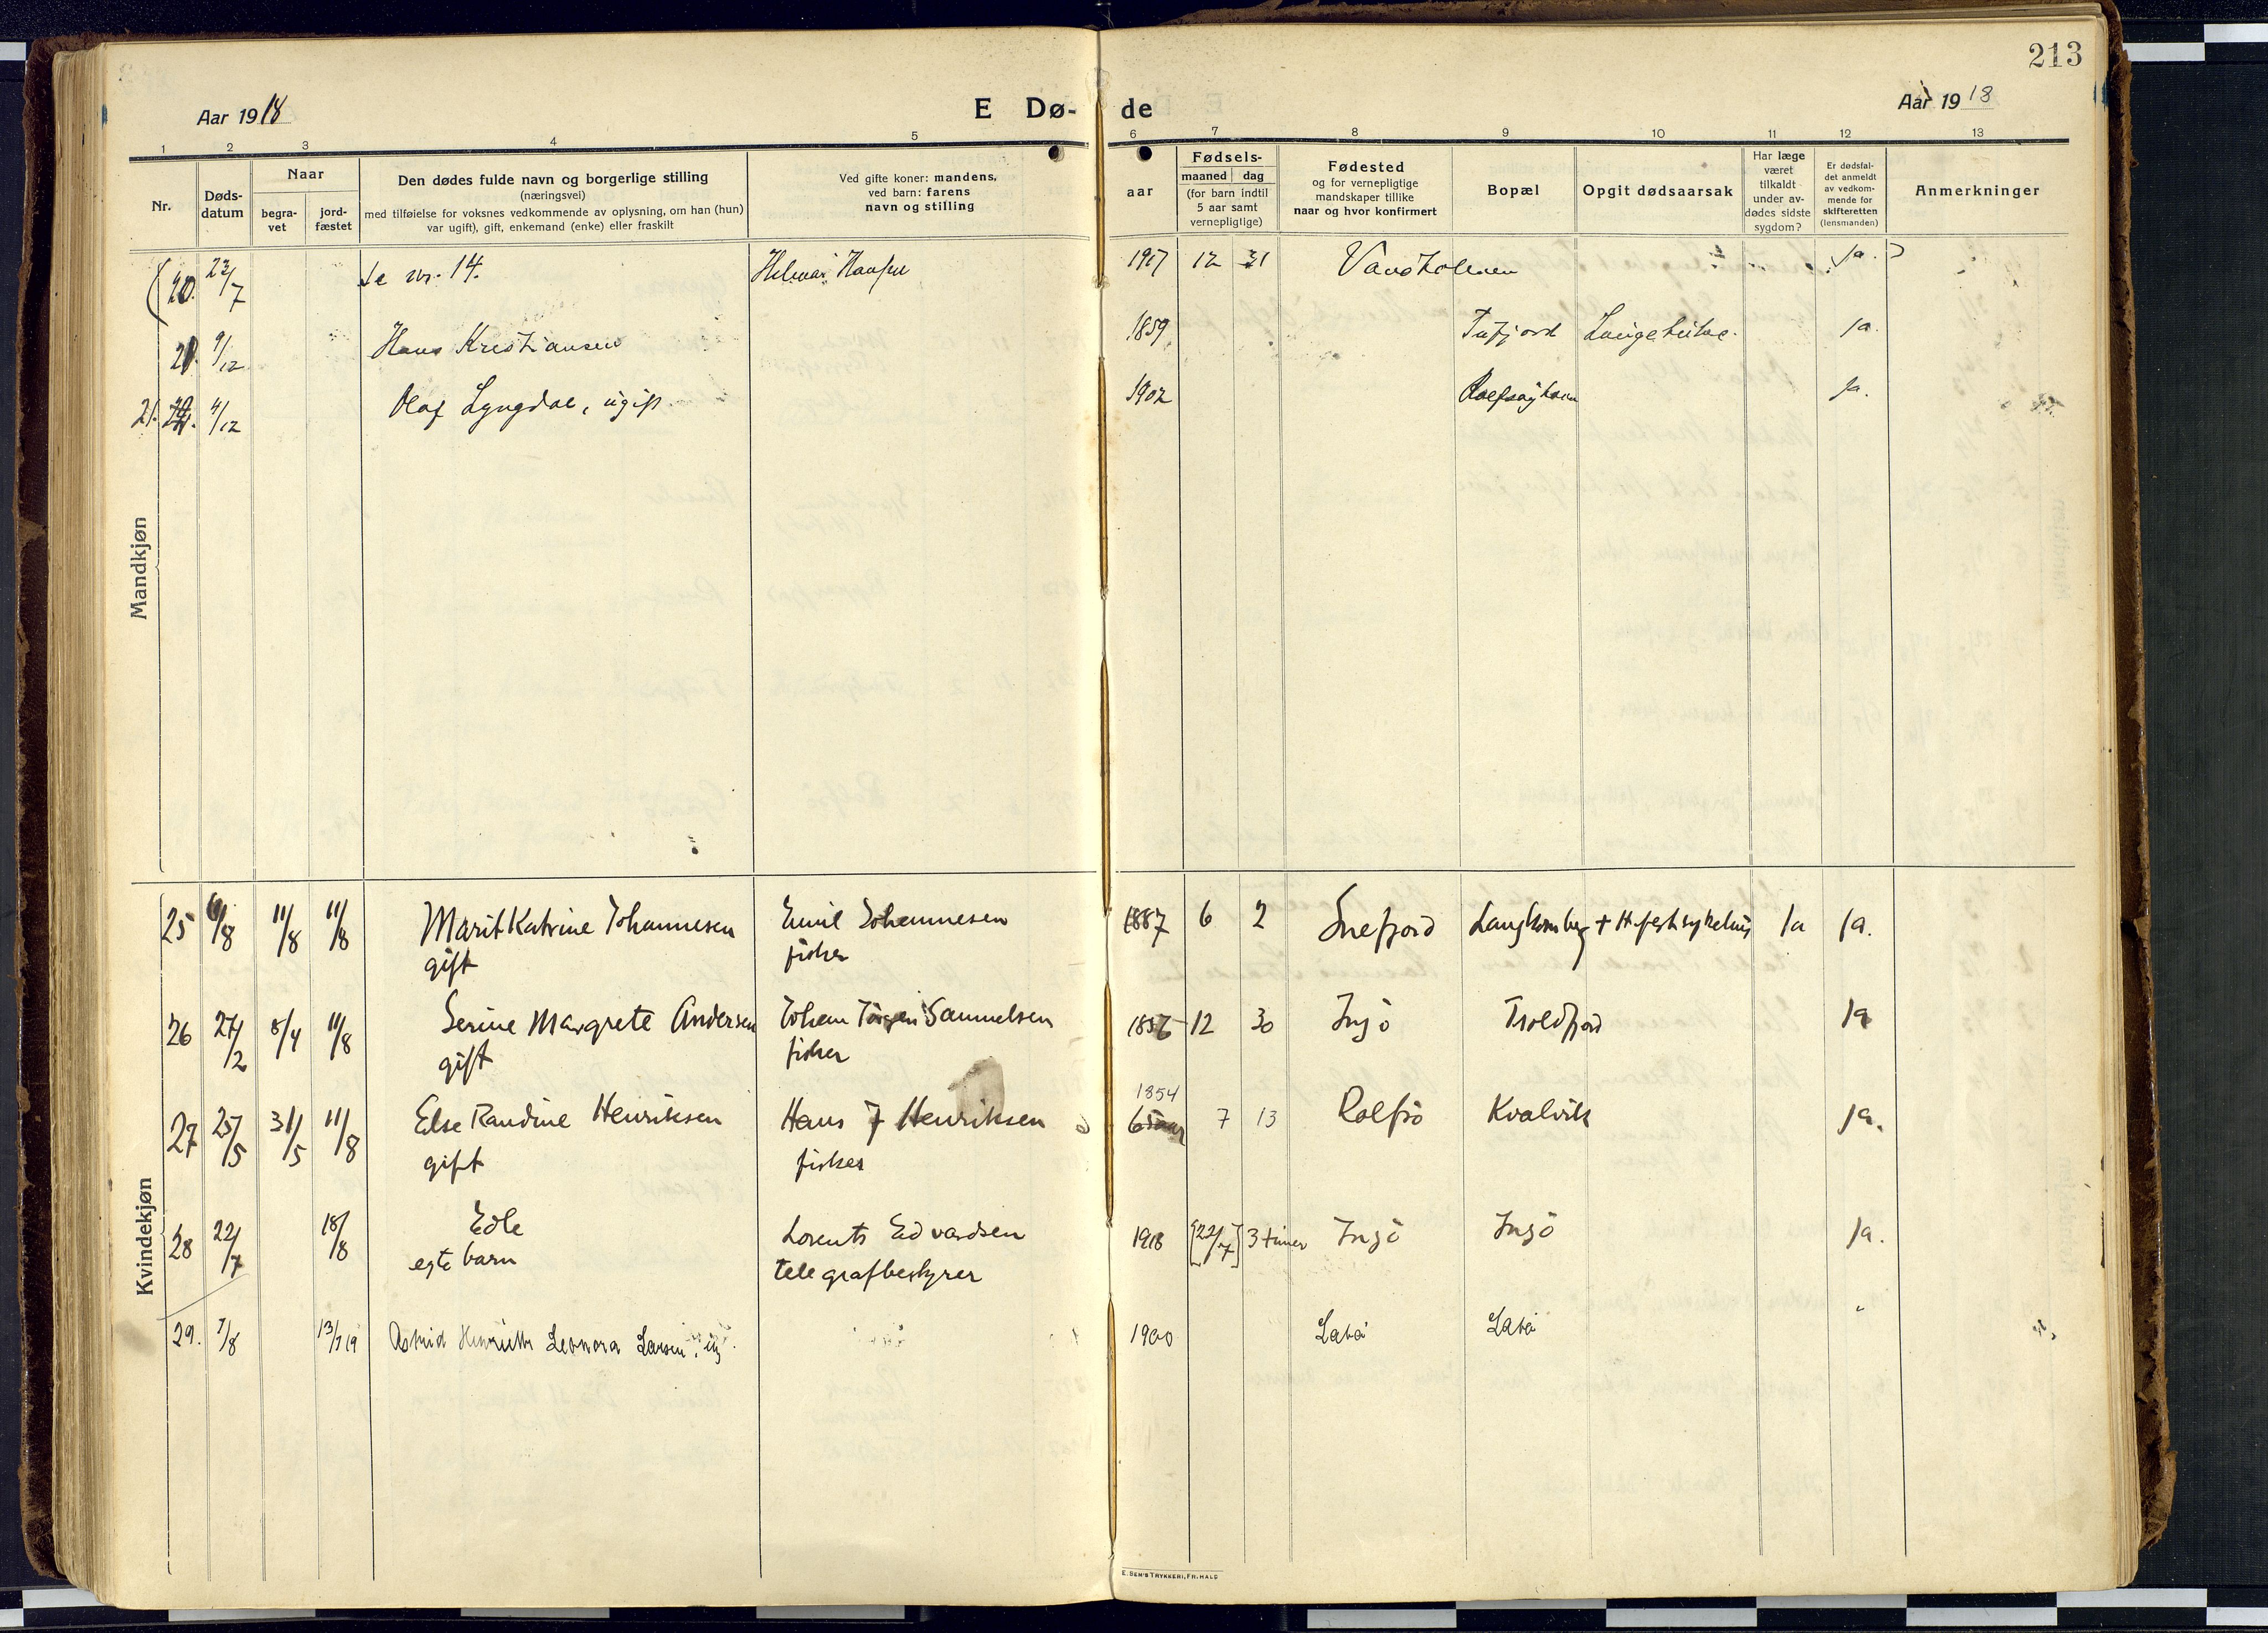 213
Aar 1918
E Dø-
de
Aar 1918
1 2 3 4 5 6 7 8 9 10 11 12 13
Nr.
Døds-
datum
Naar
begra-
vet
jord-
fæstet
Den dødes fulde navn og borgerlige stilling
(næringsvei)
med tilføielse for voksnes vedkommende av oplysning, om han (hun)
var ugift), gift, enkemand (enke) eller fraskilt
Ved gifte koner: mandens,
ved barn: farens
navn og stilling
aar
Fødsels-
maaned dag
(for barn indtil
5 aar samt
vernepligtige)
Fødested
og for vernepligtige
mandskaper tillike
naar og hvor konfirmert
Bopæl
Opgit dødsaarsak
Har læge
været
tilkaldt
under av-
dødes sidste
sygdom?
Er dødsfal-
det anmeldt
av vedkom-
mende for
skifteretten
(lensmanden)
Anmerkninger
Mandkjøn
(20. 23/7 se nr. 14. Hilmar Hansen 1917 12 31 Vandholmen ja. )
20. 9/12 Hans Kristiansen 1859 Tufjord ja.
21. 4/12 Olaf Lyngdal, ugift 1902 Rolfsøyhavn ja.
Kvindekjøn
25 6/8 11/8 11/8 Marit Katrine Johannesen Emil Johannesen 1887 6 2 Snefjord + H.fest sykehus Ja Ja.
gift fisker
26 27/2 8/4 11/8 Serine Margrete Andersen Johan Jørgen Samuelsen 1856 12 30 Ingö Troldfjord Ja
gift fisker
1854
27 25/5 31/5 11/8 Else Randine Henriksen Hans J Henriksen 65 aar 7 13 Rolfsö Kvalvik Ja.
gift fisker
28 22/7 18/8 Edle Lorents Edvardsen 1918 [22/7] 3 timer Ingö Ingö Ja.
egte barn telegrafbestyrer
29. 7/8 13/7 19 Astrid Henriette Leonora Larsen, ug. 1900 "
E. SEM'S TRYKKERI, FR.HALD